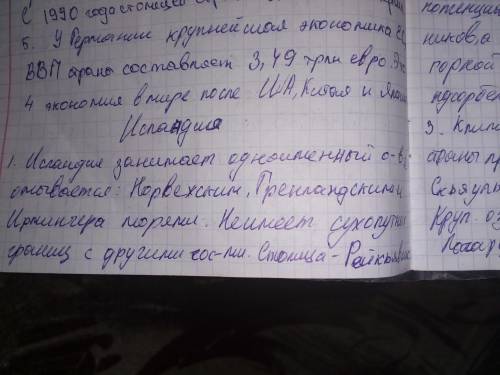 С 1990 года столицей
5. У Германии крупнейшая экономика
ВВП страны составляет 3,49 трлн евро. Это
4 экономия в мире после США, Китая и Япони
Исландия
1. Исландия занимает одноименный о-в,
омывается: Норвежским, Гренландским
Ирмингера морями. Неимеет сухопутны
границ с другими гос-ми. Столица - Рейкьявик
потенциа
ников, а
горной
3. Климa
страны пр
Круп. оз